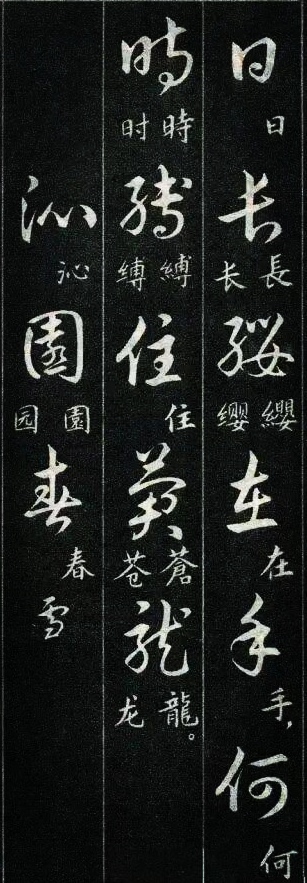 日日长長长纓纓缨在在手手，何何
時時时縛縛缚住住蒼蒼苍龍龍龙。
沁沁園園园春春雪